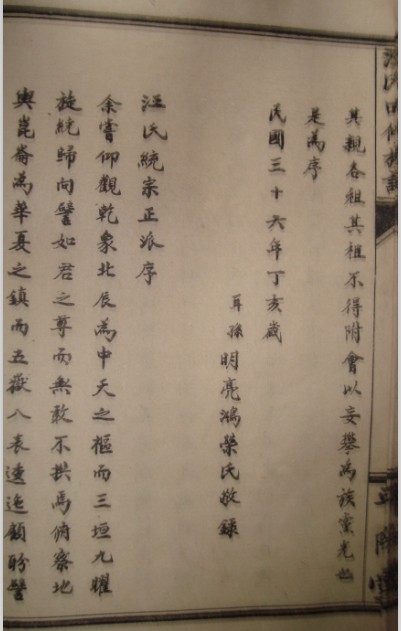 其親各祖其祖不得附會以妄攀為族宗光也
是為序
民國三十六年丁亥歲
耳孫明亮鴻榮氏敬錄
汪氏統宗正派序
余嘗仰觀乾象北辰為中天之樞而三垣九曜
旋繞歸向譬如君之尊而無敢不拱焉俯察地
輿崑崙為華夏之鎮而五嶽八表透迤顧盼譬